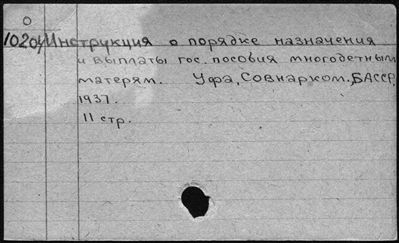 1020у Инструкция о порядке назначения
и выплаты гос. пособия многодетным
матерям. Уфа, Совнарком. БАССР,
1937.
11 стр.